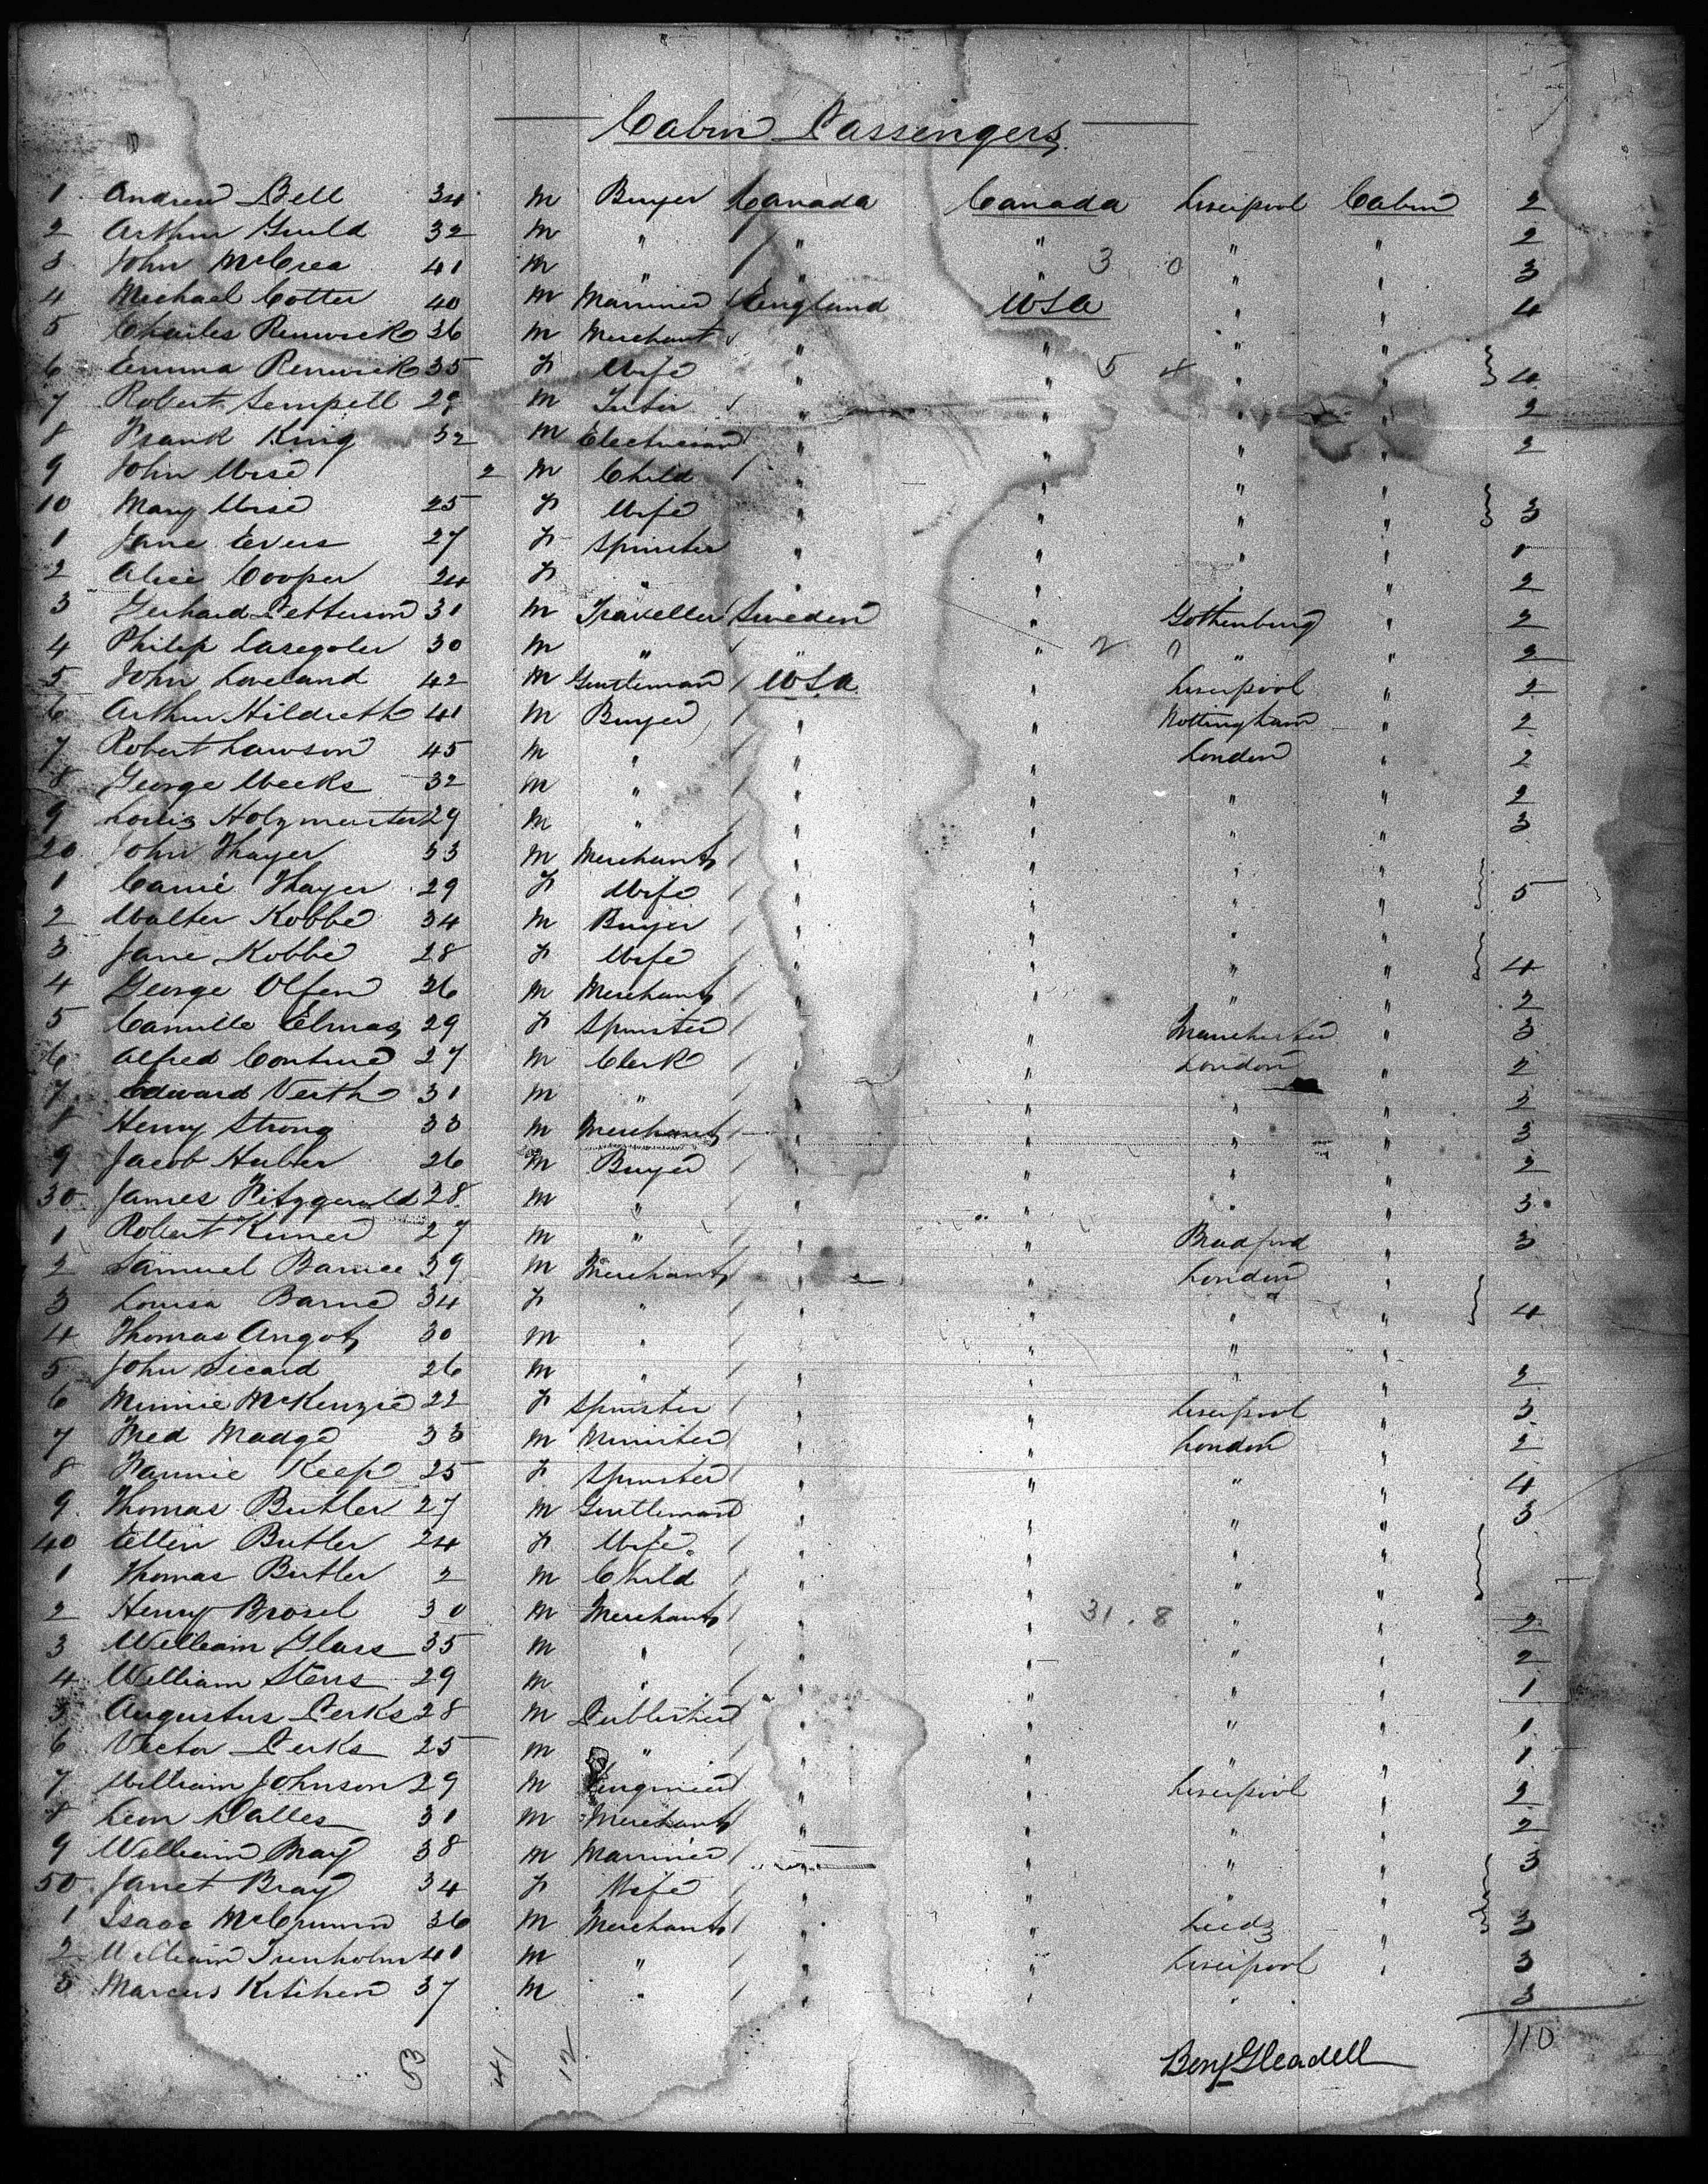 Cabin Passengers
1 Andrew Bell 34 M Buyer Canada Canada Liverpool Cabin 2
2 Arthur Guild 32 M " " " " " 2
3 John McCrea 41 M " " " 3 0 " " 3
4 Michael Cotter 40 M Mariner England USA " " 4
5 Charles Renwick 36 M Merchant " " " "
6 Emma Renwick 35 F Wife " " 5 4 " " 4
7 Robert Sempell 28 M " " " " 2
8 Frank King 32 M Electrician " " " " 2
9 John Wise 2 M Child " " " "
10 Mary Wise 25 F Wife " " " " 3
1 Jane Evers 27 F Spinster " " " " 1
2 Alice Cooper 24 F " " " " " 2
3 Gerhard Petterson 30 M Traveller Sweden " Gothenburg " 2
4 Philip 30 M " " " 2 0 " " 2
5 John Loveland 42 M Gentleman USA " Liverpool " 2
6 Arthur Hildreth 41 M Buyer " " Nottingham " 2
7 Robert Lawson 45 M " " " London " 2
8 George Weeks 32 M " " " " " 2
9 Louis Holzmeister 29 M " " " " " 3
20 John Thayer 33 M Merchant " " " "
1 Carrie Thayer 29 F Wife " " " " 5
2 Walter Kobbe 34 M Buyer " " " "
3 Jane Kobbe 28 F Wife " " " " 4
4 George Olfen 36 M Merchant " " " " 2
5 Camille Elmas 29 F Spinster " " Manchester " 3
6 Alfred Conture 27 M Clerk " " London " 2
7 Edward Verth 31 M " " " " " 2
8 Henry Strong 33 M Merchant " " " " 3
9 Jacob Huber 26 M Buyer " " " " 2
30 James Fitzgerald 28 M " " " " " 3
1 Robert 27 M " " " Bradford " 3
2 Samuel Barnce 39 M Merchant " " London "
3 Louisa Barne 34 F " " " " " 4
4 Thomas Angot 30 M " " " " "
5 John Sicard 26 M " " " " " 2
6 Minnie McKenzie 22 F Spinster " " Liverpool " 3
7 Fred Madge 33 M Minister " " London " 2
8 Fannie Keep 25 F Spinster " " " " 4
9 Thomas Butler 27 M Gentleman " " " " 3
40 Ellen Butler 24 F Wife " " " "
1 Thomas Butler 2 M Child " " " "
2 Henry Brosel 30 M Merchant " " 31 . 8 " " 2
3 William Glass 35 M " " " " " 2
4 William Stens 29 M " " " " " 1
5 Augustus Perks 28 M Publisher " " " " 1
6 Victor Perks 25 M " " " " " 1
7 William Johnson 29 M Engineer " " Liverpool " 2
8 Leon Dalles 31 M Merchant " " " " 2
9 William Bray 38 M Mariner " " " " 3
50 Janet Bray 34 F Wife " " " "
1 Isaac McCrumm 36 M Merchant " " Leeds " 3
2 William Trenholm 40 M " " " Liverpool " 3
3 Marcus Kitchen 37 M " " " " 3
53 41 12 110
Benj Gleadell